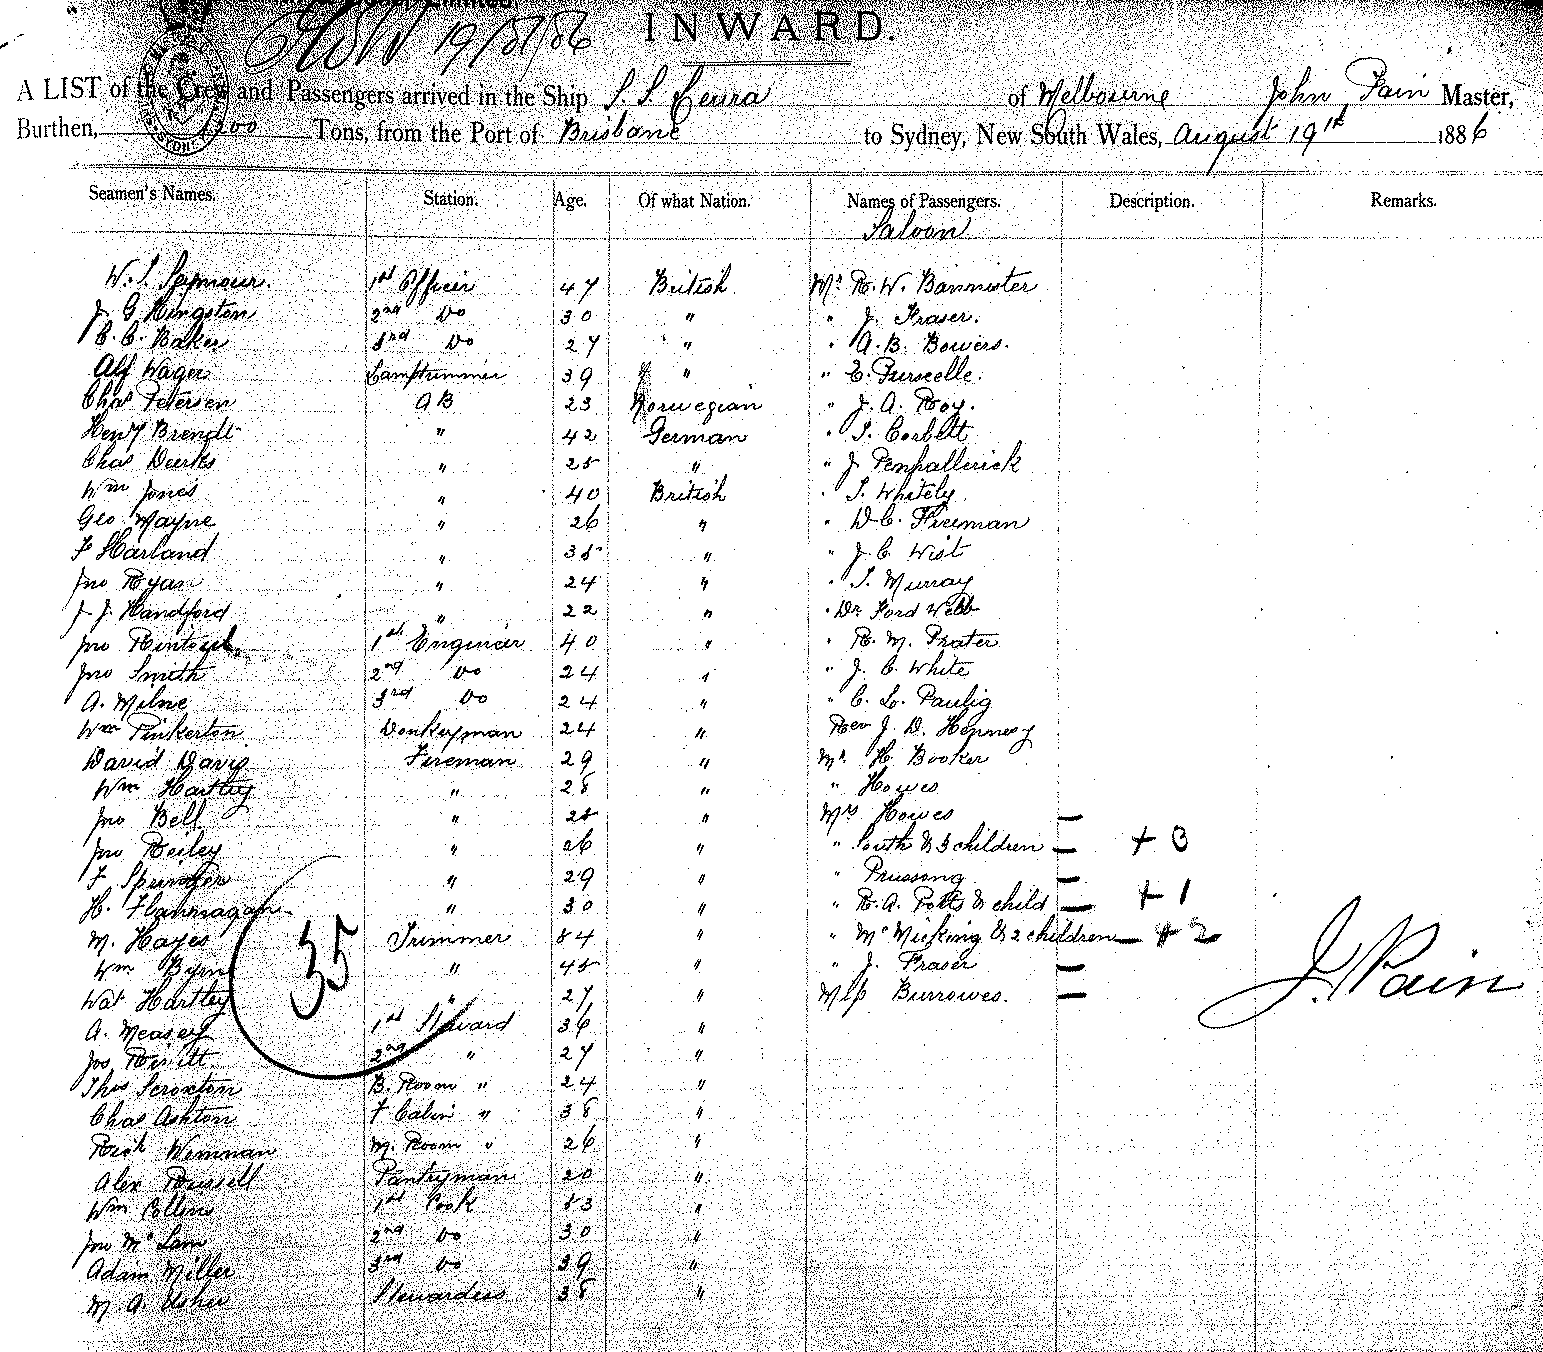 19/8/86
INWARD.
A LIST of the Crew and Passengers arrived in the Ship S. S. Leura of Melbourne John Pain Master,
Burthen, 1200 Tons, from the Port of Brisbane to Sydney, New South Wales, August 19th 1886
Seamen's Names. Station. Age. Of what Nation. Names of Passengers. Description. Remarks.
Saloon
W. S. Seymour. 1st Officer 47 British Mr R. W. Bannister
J. G Kingston 2nd Do 30 " " J. Fraser.
C. C. Baker 3rd Do 27 " " A. B. Bowers.
Alf Wager Lamptrimmer 39 " " E. Purcelle.
Chas Petersen AB 23 Norwegian " J. A. Roy.
Heny Brendt " 42 German " T. Corbett
Chas Deerks " 25 " " J Penhallerick
Wm Jones " 40 British " T. Whitely
Geo Wayne " 26 " " D C. Freeman
F Harland " 35 " " J. C West
Jno Ryan " 24 " " T. Murray
J J. Handford " 22 " " Dr Ford Webb
Jno Rintoul 1st Engineer 40 " " R. M. Prater
Jno Smith 2nd Do 24 " " J. C. White
A. Milne 3rd Do 24 " " C. L. Paulig
Wm Pinkerton Donkeyman 24 " Rev J. D. Hennesy
David Davis Fireman 29 " Mr H. Booker
Wm Hartley " 28 " " Howes
Jno Bell " 25 " Mrs Howes —
Jno Reiley " 26 " " South & 3 children — + 3
F Springer " 29 " " Prussong —
H. Flannagan " 30 " " R. A. Potts & child — + 1
M. Hayes Trimmer 34 " " McMicking & 2 children — + 2
Wm Byrne " 45 " " J. Fraser —
Wat Hartley " 27 " Miss Burrowes. —
35
J. Pain
A. Measey 1st Steward 36 "
Jos Revitt 2nd " 27 "
Thos Scroxton B. Room " 24 "
Chas Ashton F Cabin " 38 "
Rich Wenman M. Room " 26 "
Alex Russell Pantryman 20 "
Wm Collins 1st Cook 33 "
Jno McLam 2nd Do 30 "
Adam Miller 3rd Do 39 "
M A. Usher Stewardess 38 "